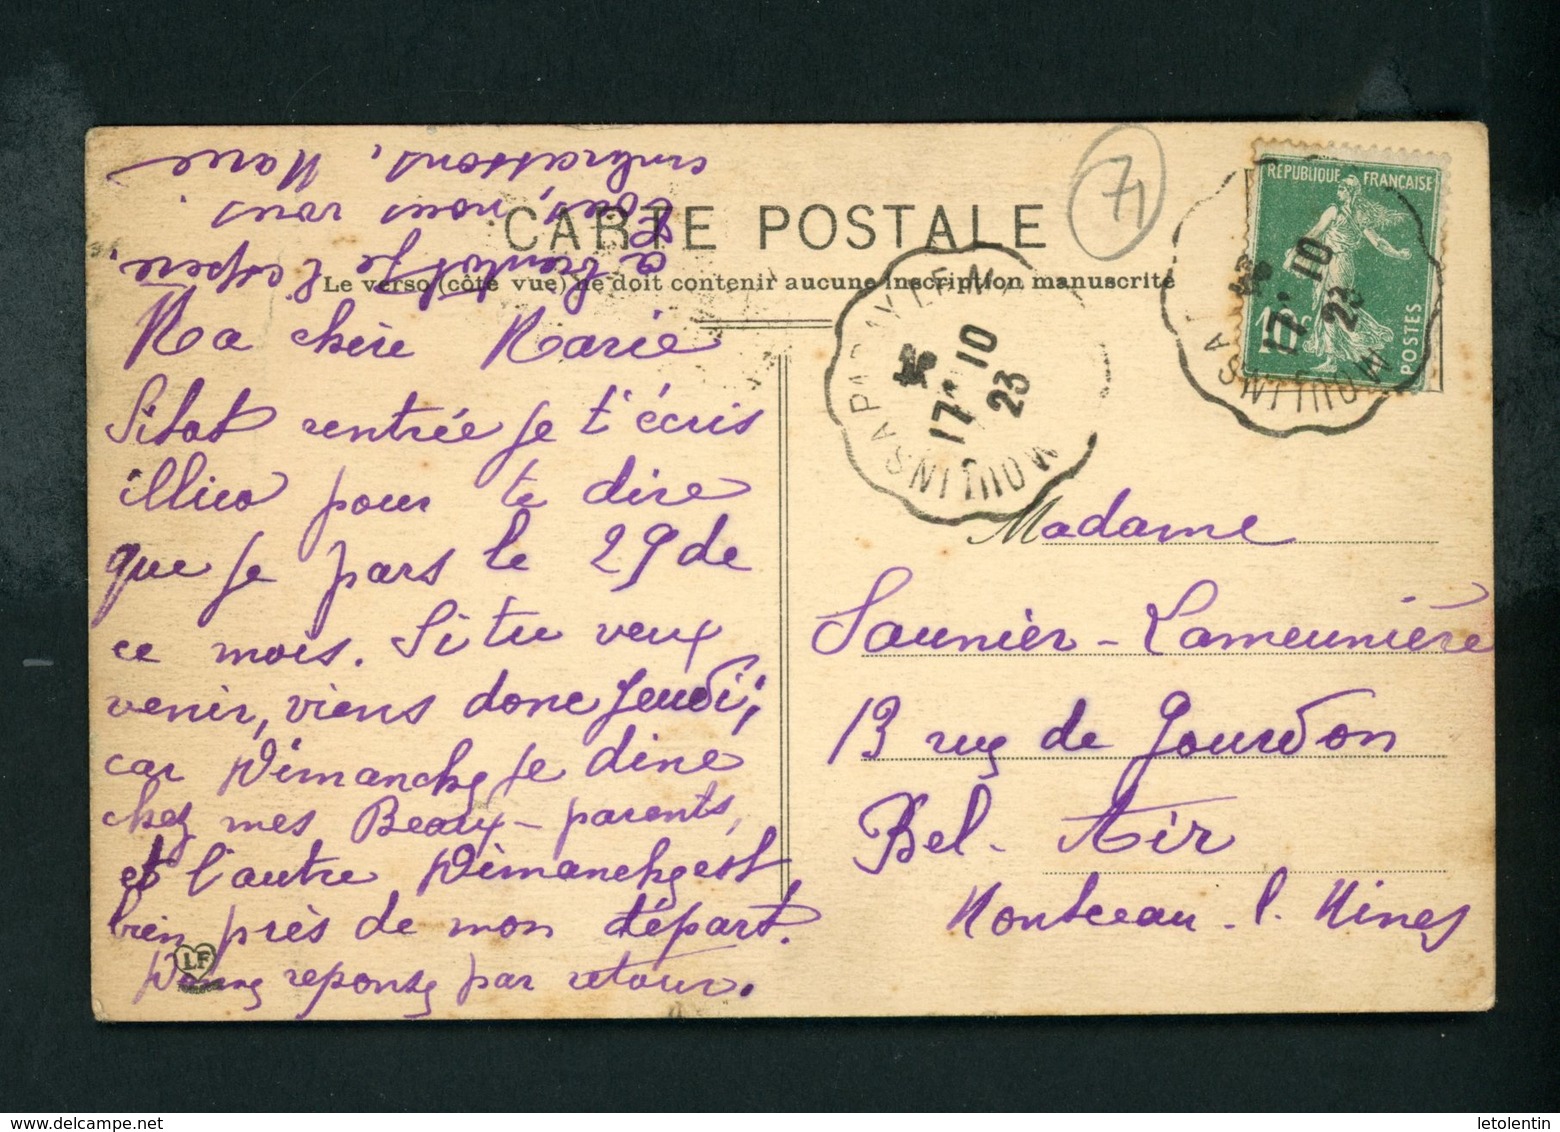 CARTE POSTALE
Le verso (côté vue) ne doit contenir aucune inscription manuscrite
71
REPUBLIQUE FRANÇAISE
POSTES
10c
MOULINS A PARAY LE M
17-10
23
MOULINS A
17-10
23
Ma chère Marie
Sitot rentrée je t'écris
illico pour te dire
que je pars le 29 de
ce mois. Si tu veux
venir, viens donc Jeudi;
car Dimanche je dine
chez mes Beaux-parents,
et l'autre Dimanche est
bien près de mon départ.
Donne reponse par retour.
a bientot je l'espère,
Tous, nous vous
embrassons, Marie
LF
Madame
Saunier-Lameunière
13 rue de Gourdon
Bel-Air
Montceau-l. Mines
letolentin